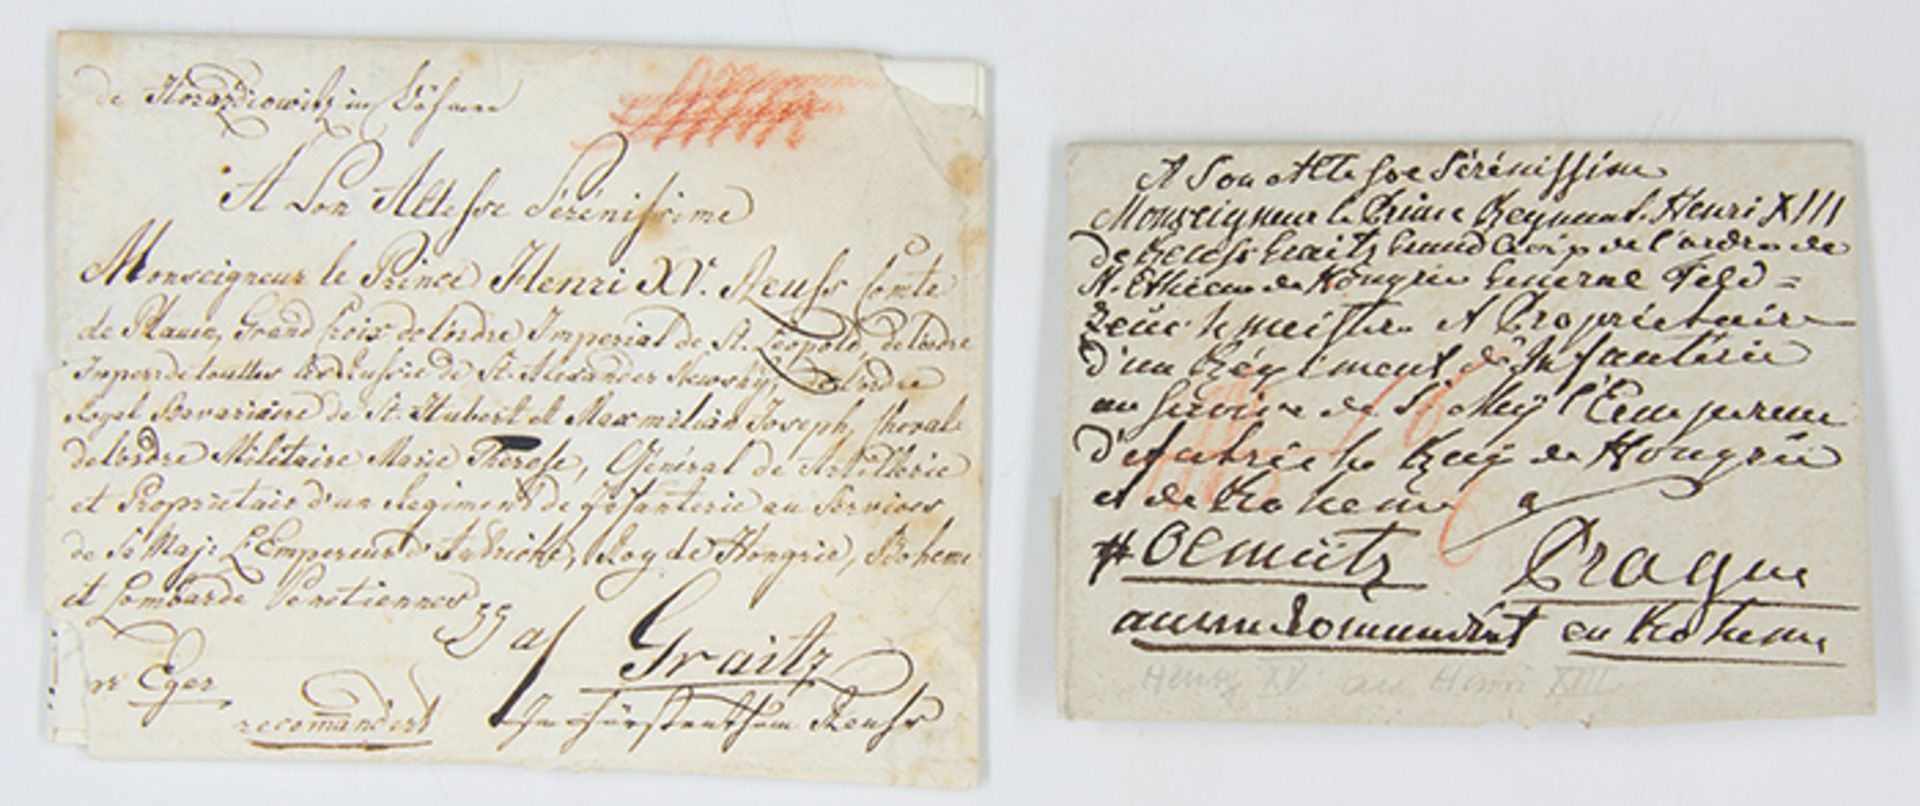 de Horazdiowitz in Böhmen
A Son Altesse Sérénissime
Monseigneur le Prince Henri XV. Reuss Comte
de Plauen, Grand Croix de l'ordre Imperial de St. Leopold, de l'ordre
Imper: de touttes les Russie de St. Alexander Newsky, de l'ordre
Royal Bavariaire de St. Hubert et Maxmilian Joseph, Cheval:
de l'ordre Militaire Marie Therese, Général de Artillerie
et Proprietair d'un Regiment de Infanterie au Services
de Sa Maj: L'Empereur d'Autriche, Roy de Hongrie, Boheme
et Lombarde Venetiennes
à
Graitz
Eger
recomandirt
Im Fürstenthum Reuss
A Son Altesse Sérénissime
Monseigneur le Prince Regnant Henri XIII
de Reuss Graitz Grand Croix de l'ordre de
St. Etienne de Hongrie General Feld=
zeugmeistre & Propriétaire
d'un Régiment d'Infantérie
au Service de S. Maj l'Empereur
d'Autriche Roy de Hongrie
et de Boheme a
# Oemütz Prague
en Boheme
Henry XV an Henri XIII